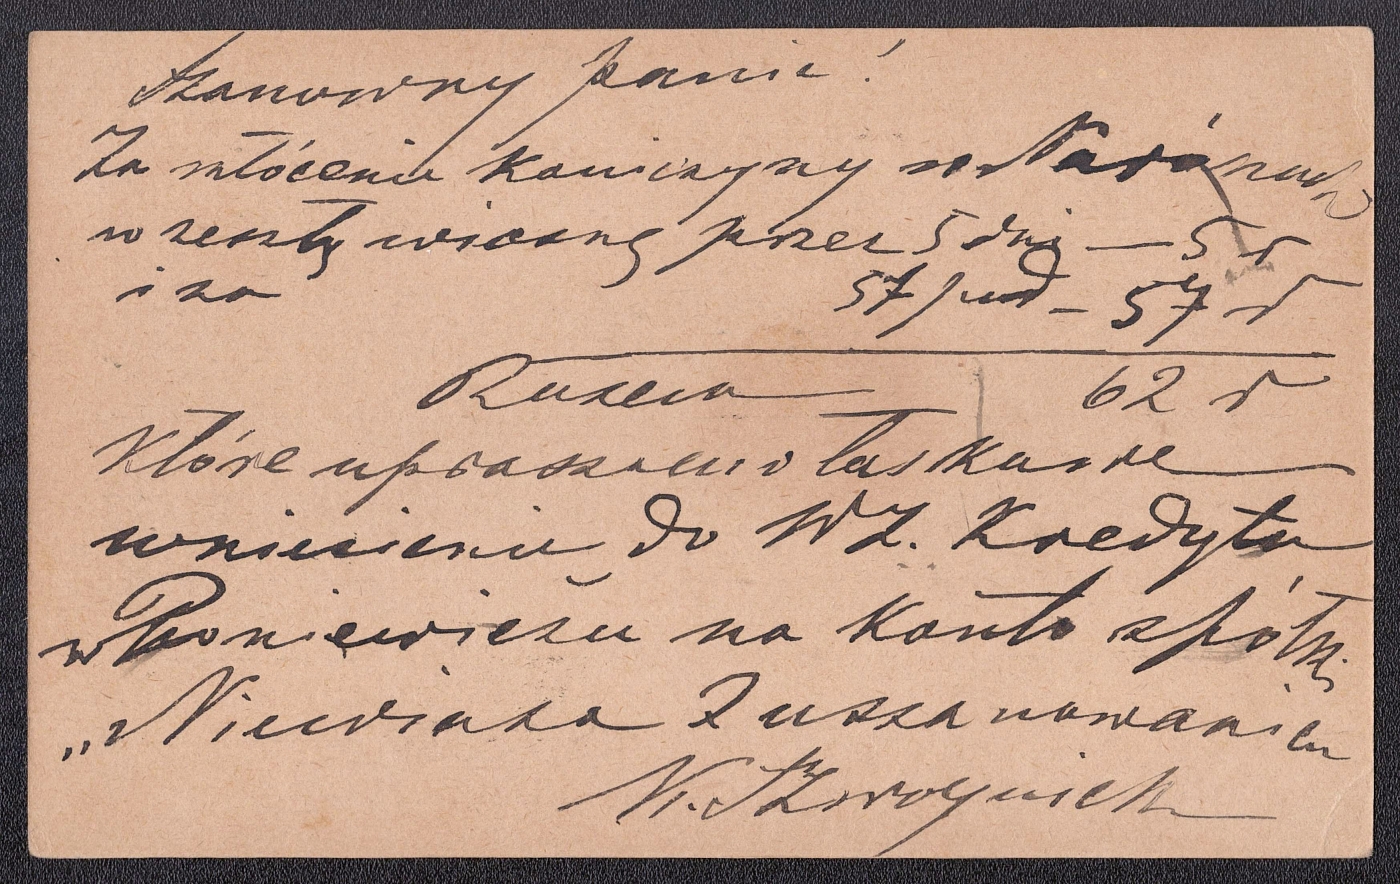 Szanowny Panie!
Za młócenie koniczyny w
w zeszłą wiosnę przez 5 dni — 5 r
i za 57 pud — 57 r
Razem 62 r
Które upraszam o łaskawe
wniesienie do W Z. Kredytu
w Poniewieżu na konto spółki
„Niewiaża Z uszanowaniem